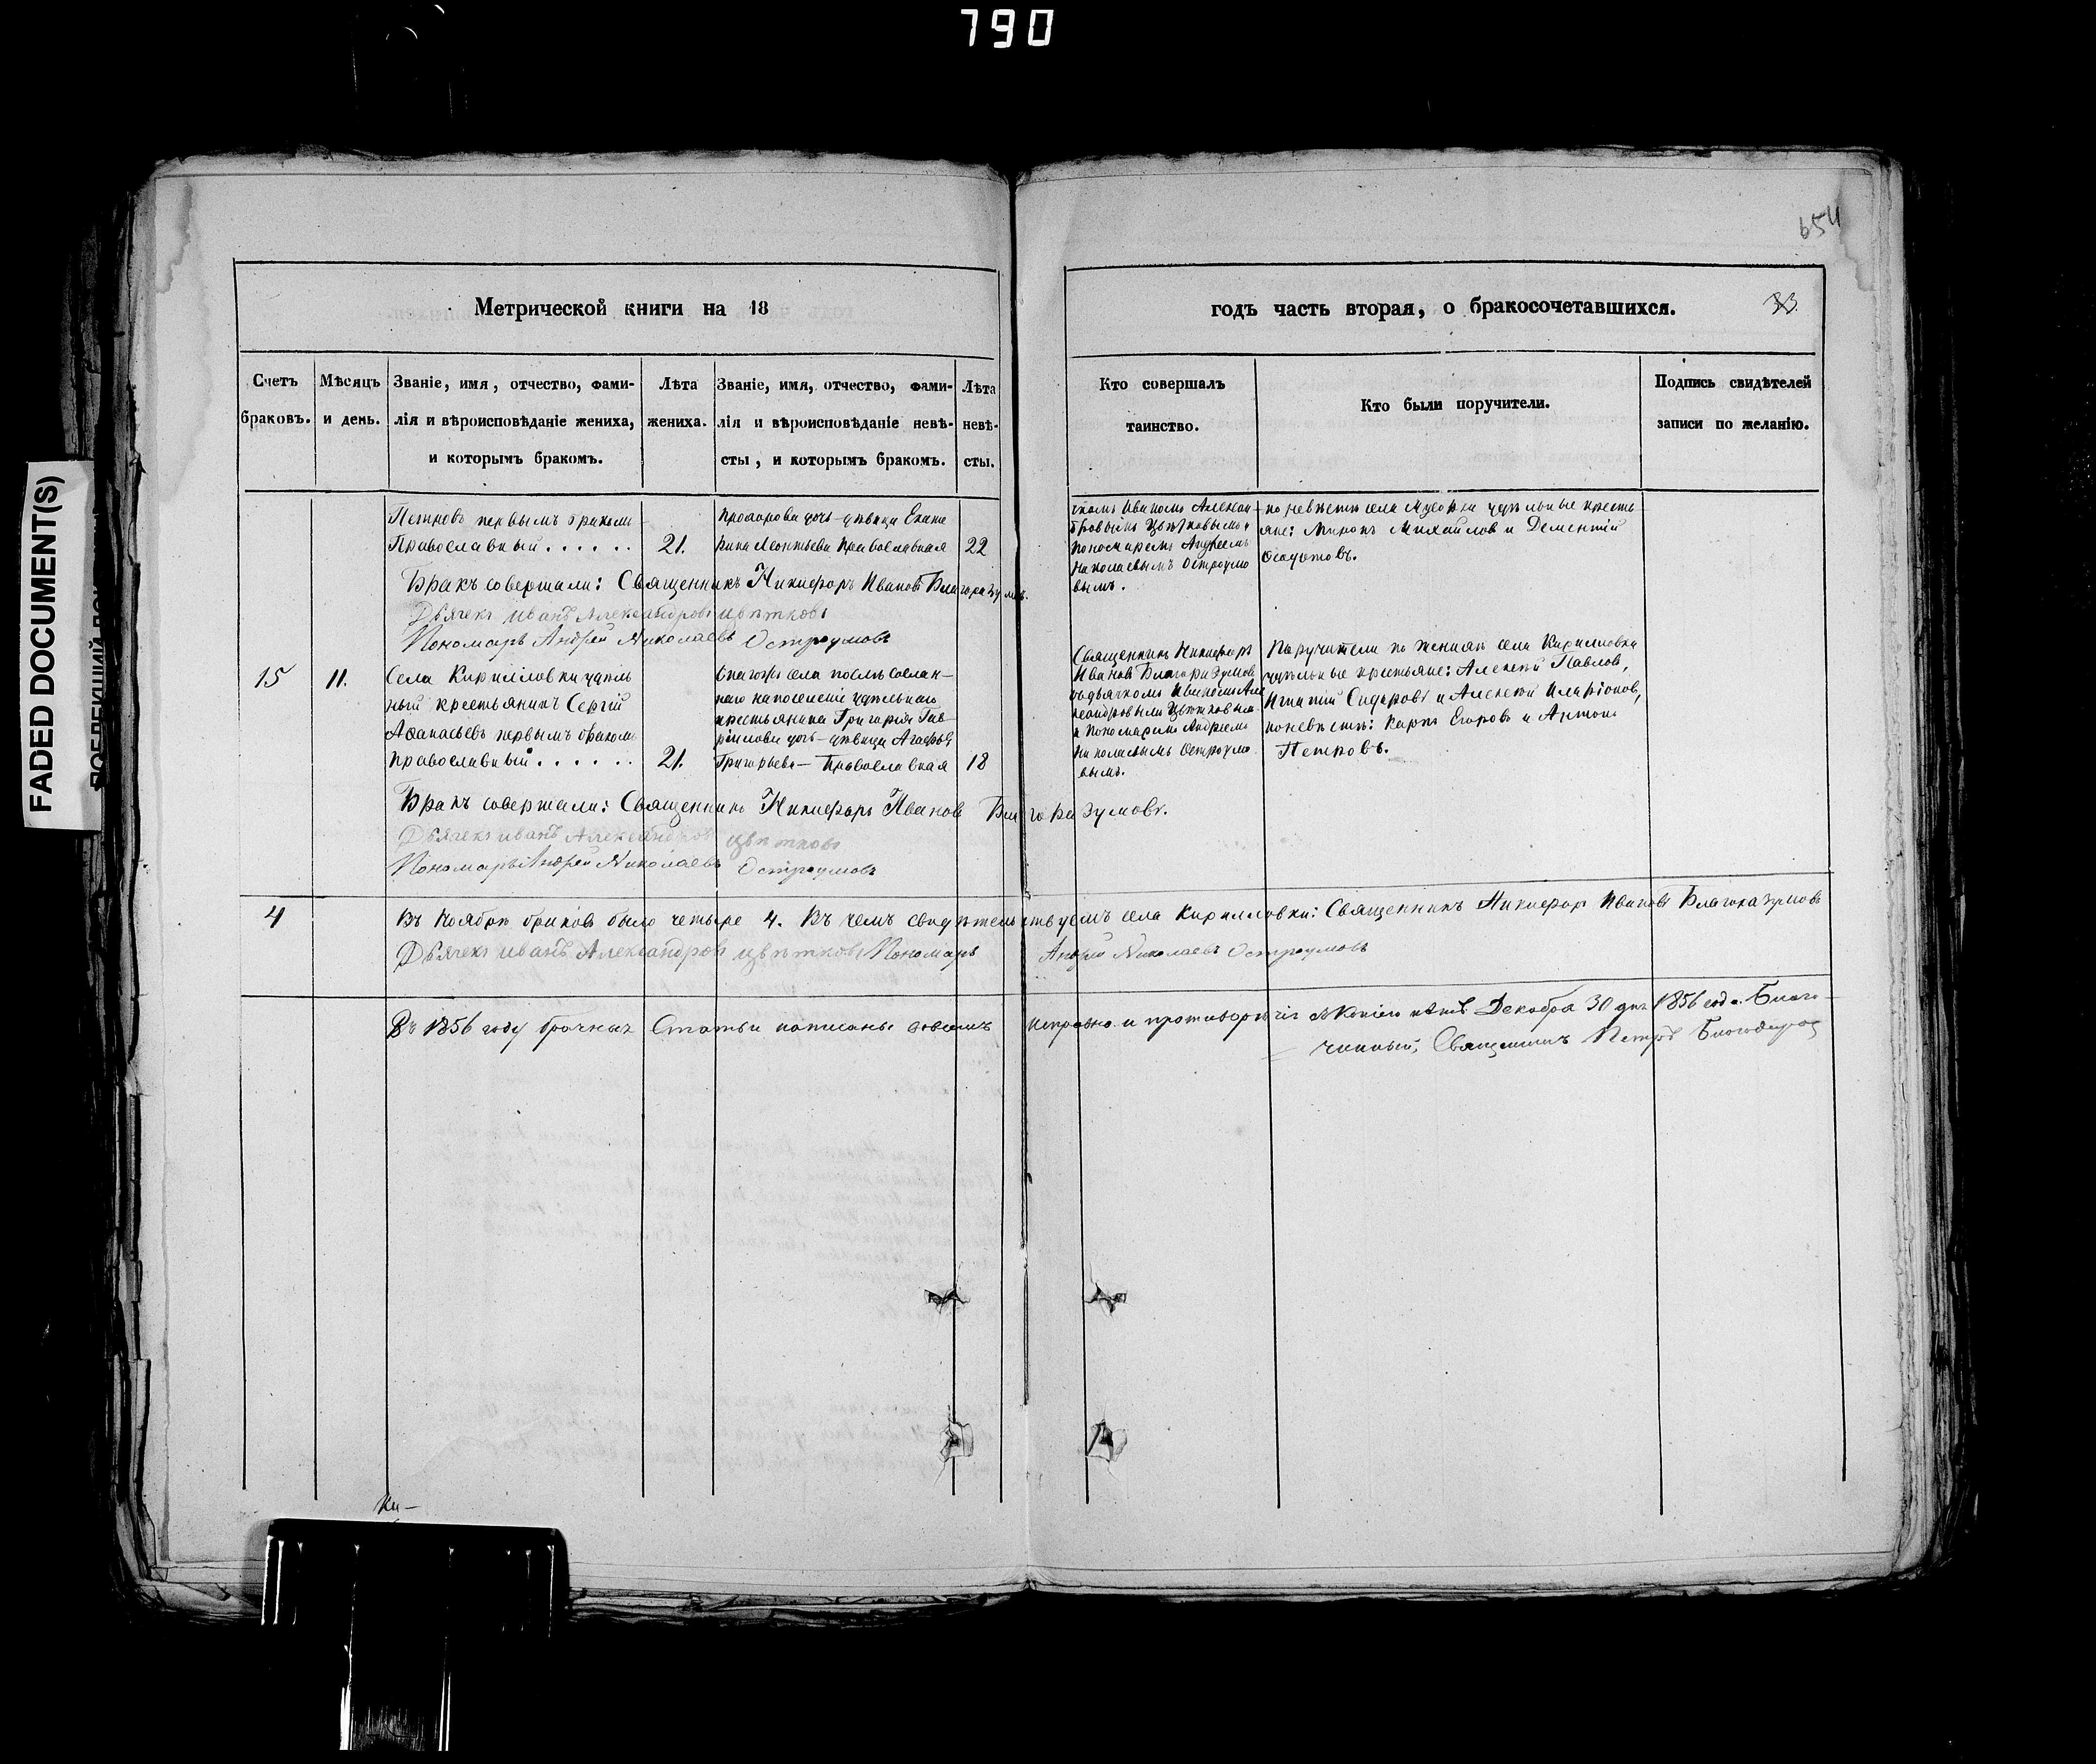 790
FADED DOCUMENT(S)
654
Метрической книги на 18
годъ часть вторая, о бракосочетавшихся.
33.
Счетъ браковъ.
Мѣсяцъ и день.
Званіе, имя, отчество, фами-
лія и вѣроисповѣданіе жениха,
и которымъ бракомъ.
Лѣта жениха.
Званіе, имя, отчество, фами-
лія и вѣроисповѣданіе невѣ-
сты, и которымъ бракомъ.
Лѣта невѣ-
сты.
Кто совершалъ
таинство.
Кто были поручители.
Подпись свидѣтелей
записи по желанію.
Петровъ первымъ бракомъ
Православный . . . . . .
21.
Прохорова дочь-дѣвица Екате
рина Леонтьева Православная
22
чкомъ Иваномъ Алексан
дровымъ Цвѣтковымъ и
Пономаремъ Андреемъ
Николаевымъ Остроумо
вымъ.
по невѣстѣ села Мусорки удѣльные кресть
яне: Миронъ Михайловъ и Дементій
Ѳедотовъ.
Бракъ совершали: Священникъ Никифоръ Ивановъ Благоразумовъ.
Дьячекъ Иванъ Александровъ Цвѣтковъ
Пономарь Андрей Николаевъ Остроумовъ
15
11.
Села Кирилловки удѣль
ный крестьянинъ Сергій
Аѳанасьевъ первымъ бракомъ
Православный . . . . . .
21.
онагожъ села послѣ сослан-
наго на поселеніе удѣльнаго
крестьянина Григорія Гав-
рилова дочь-дѣвица Агафья
Григорьева - Православная
18
Священникъ Никифоръ
Ивановъ Благоразумовъ
съ дьячкомъ Иваномъ Але
ксандровымъ Цвѣтковымъ
и Пономаремъ Андреемъ
Николаевымъ Остроумо
вымъ.
Поручители по женихѣ села Кирилловки
удѣльные крестьяне: Алексѣй Павловъ,
Игнатій Сидоровъ и Алексѣй Иларіоновъ,
по невѣстѣ: Карпъ Егоровъ и Антонъ
Петровъ.
Бракъ совершали: Священникъ Никифоръ Ивановъ Благоразумовъ.
Дьячекъ Иванъ Александровъ Цвѣтковъ
Пономарь Андрей Николаевъ Остроумовъ
4
Въ Ноябрѣ браковъ было четыре 4. Въ чемъ свидѣтельствуемъ села Кирилловки: Священникъ Никифоръ Ивановъ Благоразумовъ
Дьячекъ Иванъ Александровъ Цвѣтковъ Пономарь Андрей Николаевъ Остроумовъ
Въ 1856 году брачныя Статьи написаны совсемъ исправно и противорѣчія съ Копіею нѣтъ Декабря 30 дня 1856 года. Благо-
чинный, Священникъ Петръ
Ки-